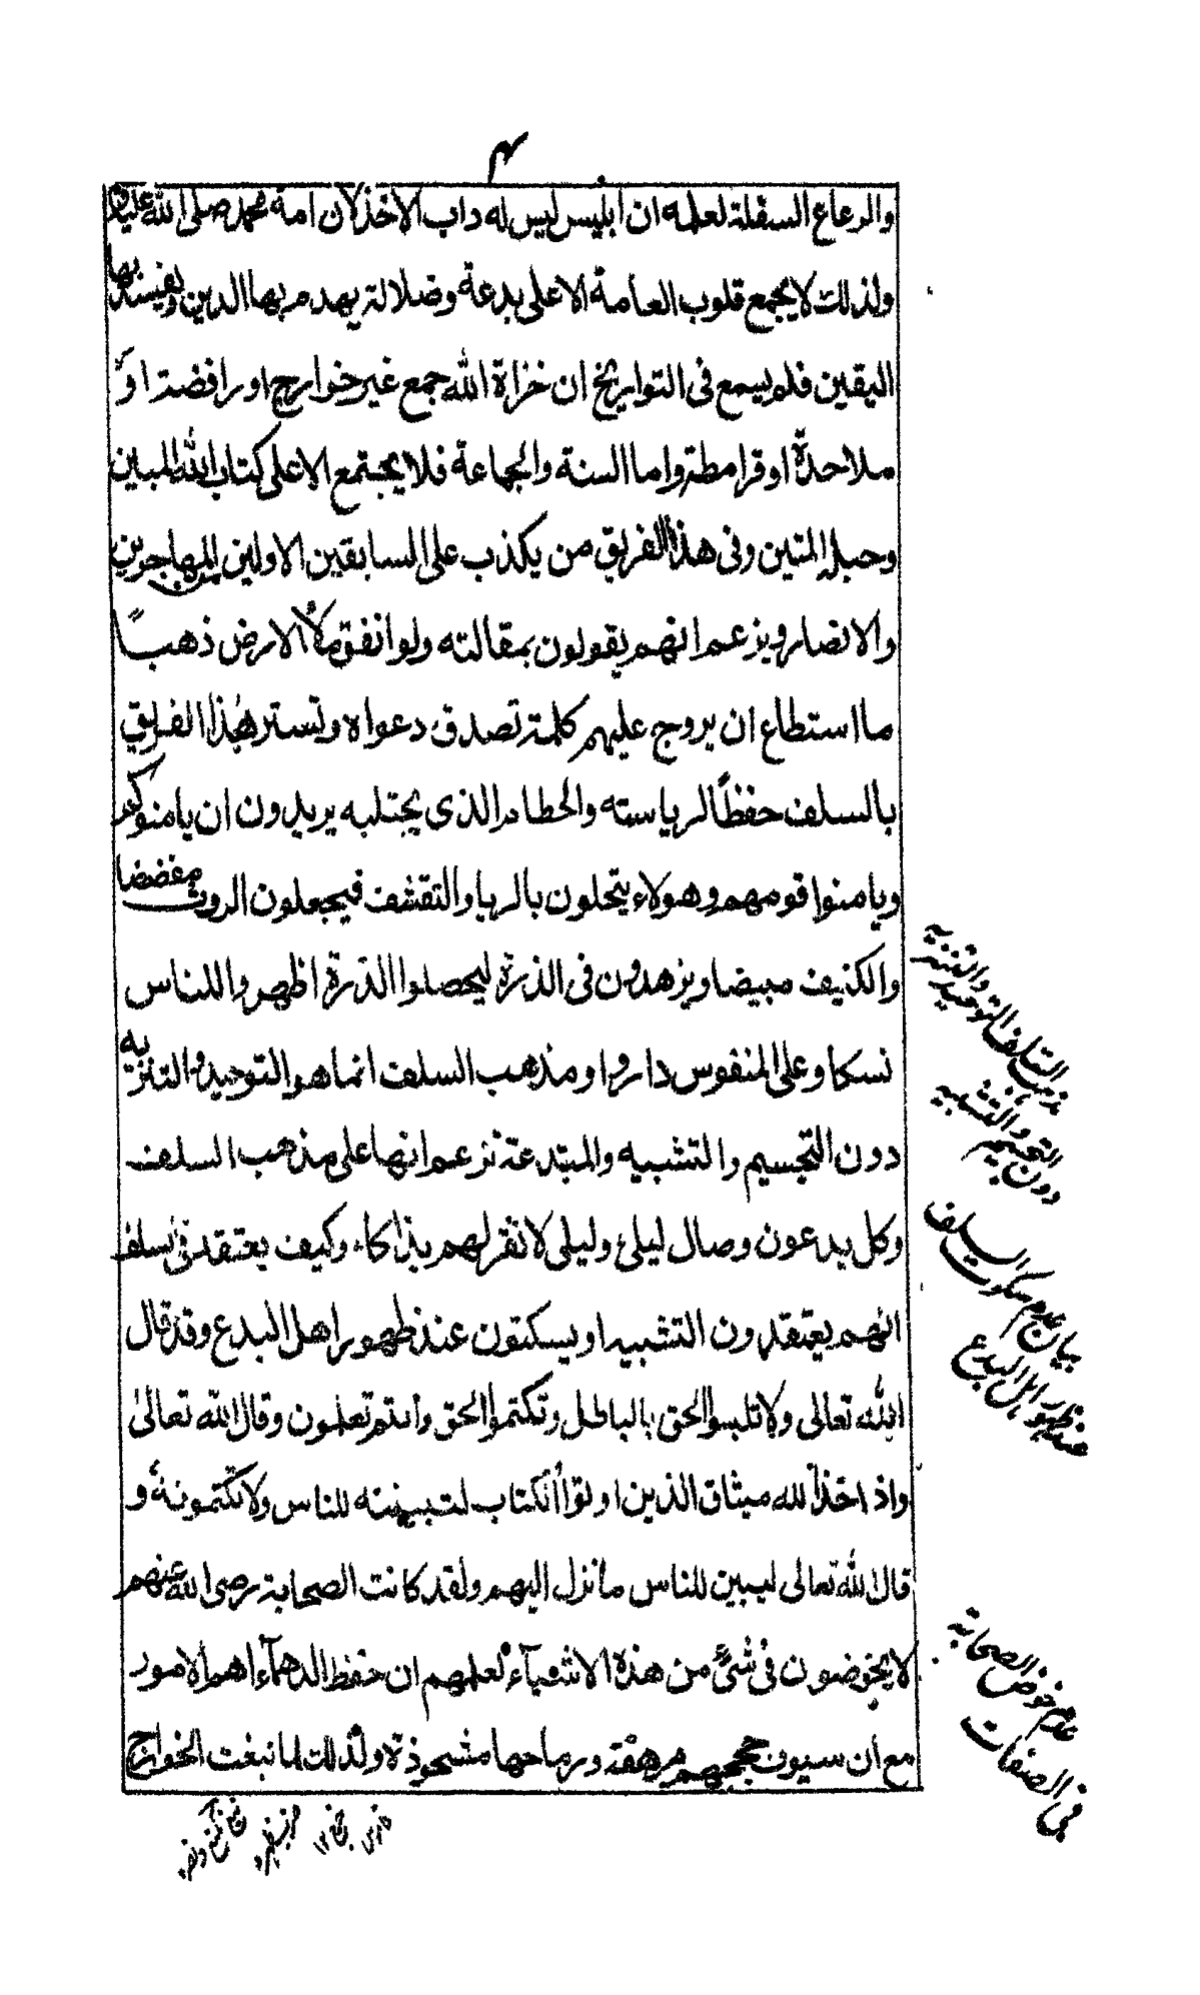 ٤
والرعاع السفلة لعلمه ان ابليس ليس له داب الا خذلان امة محمد صلى الله عليه
ولذلك لا يجمع قلوب العامة الا على بدعة وضلالة يهدم بها الدين ويفسد بها
اليقين فلم يسمع فى التواريخ ان خزاة الله جمع غير خوارج او رافضة او
ملاحدة او قرامطة واما السنة والجماعة فلا يجتمع الا على كتاب الله المبين
وحبله المتين وفى هذا الفريق من يكذب على السابقين الاولين المهاجرين
والانصار ويزعم انهم يقولون بمقالته ولو انفق ملأ الارض ذهبًا
ما استطاع ان يروج عليهم كلمة تصدق دعواه وتستر هذا الفريق
بالسلف حفظاً لرياسته والحطام الذى يجتلبه يريدون ان يامنوكم
ويامنوا قومهم وهولاء يتحلون بالريا والتقشف فيجعلون الروث مفضضا
والكنيف مبيضا ويزهدون فى الذرة ليحصلوا الدرة اظهروا للناس
نسكا وعلى المنفوس داروا ومذهب السلف انما هو التوحيد والتنزيه
دون التجسيم والتشبيه والمبتدعة تزعم انها على مذهب السلف
وكل يدعون وصال ليلى وليلى لا تقر لهم بذاكاء وكيف يعتقد فى سلف
انهم يعتقدون التشبيه او يسكتون عند ظهور اهل البدع وقد قال
الله تعالى ولا تلبسوا الحق بالباطل وتكتموا الحق وانتم تعلمون وقال الله تعالى
واذ اخذ الله ميثاق الذين اوتوا الكتاب لتبيننه للناس ولا تكتمونه و
قال الله تعالى ليبين للناس ما نزل اليهم ولقد كانت الصحابة رضى الله عنهم
لا يخوضون فى شئ من هذه الاشياء لعلمهم ان حفظ الدهمآء اهم الامور
مع ان سيوف حججهم مرهفة ورماحها مشحوذة ولذلك لما نبغت الخوارج
مذهب السلف التوحيد والتنزيه
دون التجسيم والتشبيه
بيان عدم سكوت السلف
عند ظهور اهل البدع
عدم خوض الصحابة
فى الصفات